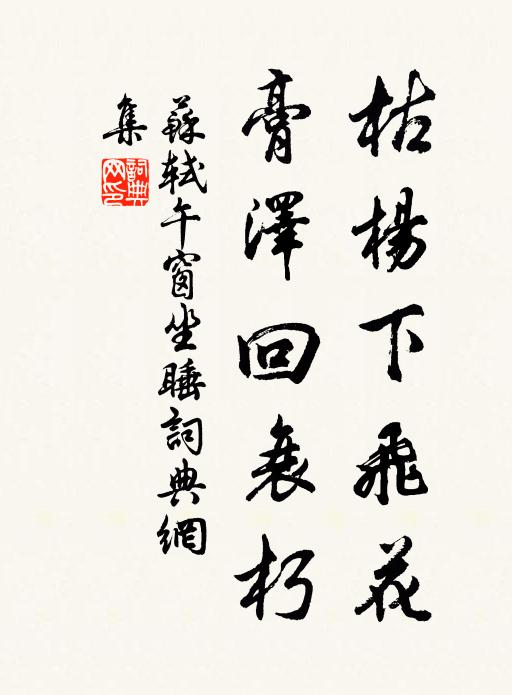 枯楊下飛花
膏澤回衰朽
蘇軾午窗坐睡詞典網
集
詞典
网印